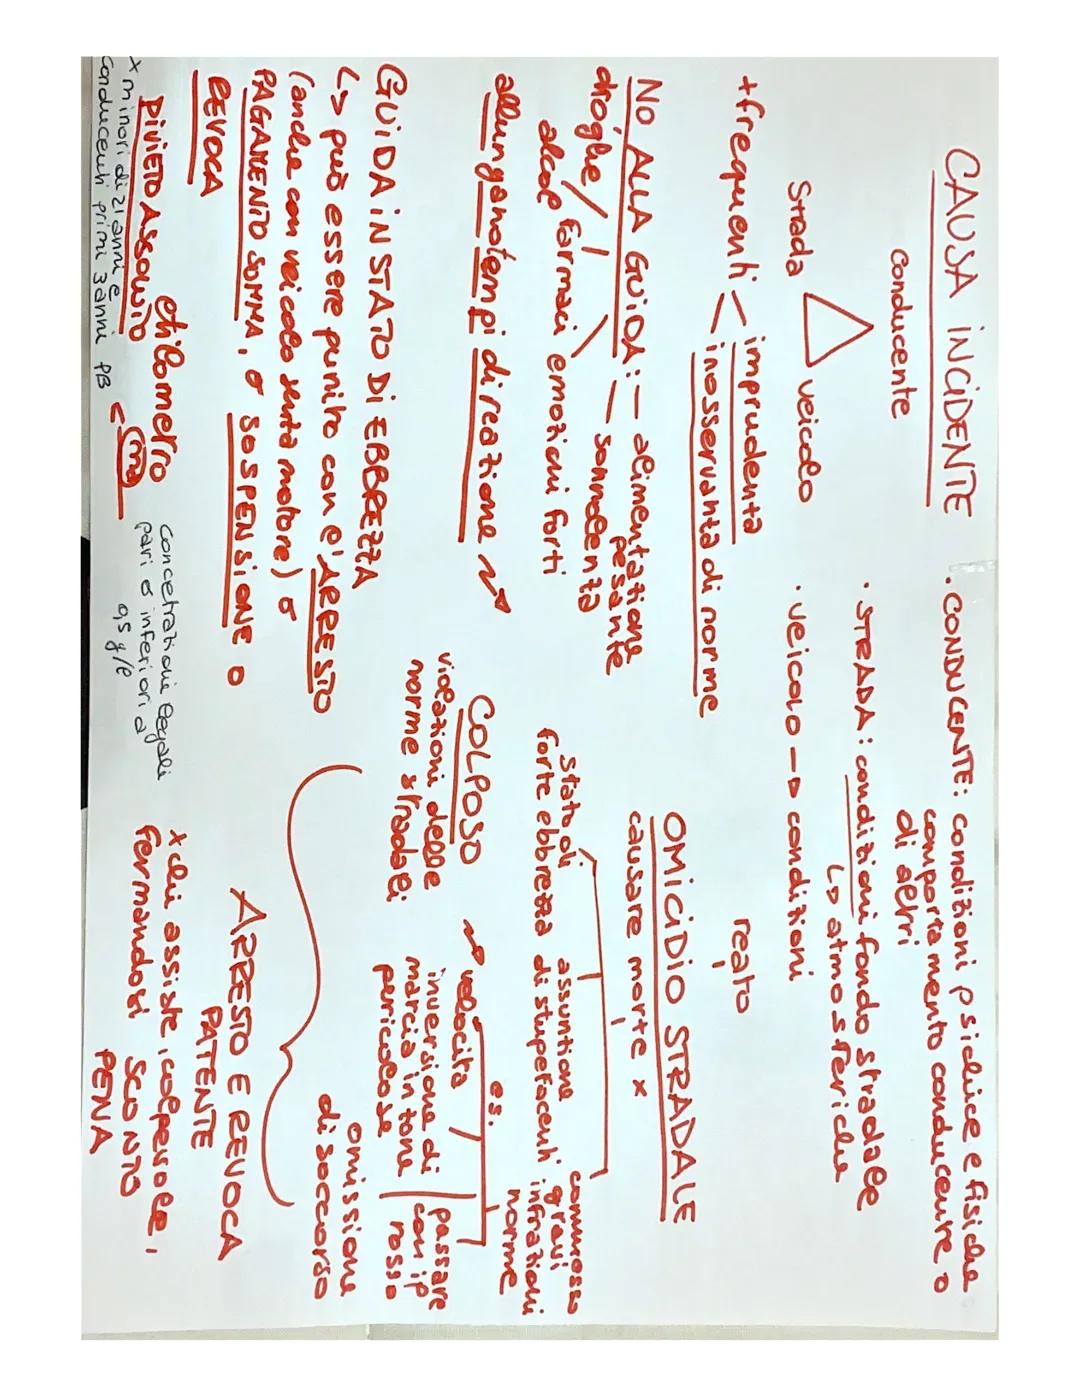 CAUSA INCIDENTE
Conducente
Strada
veicolo
+ frequenti < imprudenza
inosservanza di norme
NO ALLA GUIDA: - alimentazione pesante
- sonnolenza
droghe / farmaci emozioni forti
alcol
allungano tempi di reazione
GUIDA IN STATO DI EBBREZZA
↳ può essere punito con l'ARRESTO
(anche con veicolo senza motore) o
PAGAMENTO SOMMA, o SOSPENSIONE o
REVOCA
etilometro
concetrazioni legali
pari o inferiori a
0,5 g/l
DIVIETO ASSOLUTO < ma
x minori di 21 anni e
conducenti primi 3 anni PB
• CONDUCENTE: condizioni psichice e fisiche
comportamento conducente o
di altri
• STRADA: condizioni fondo stradale
↳ atmosferiche
• VEICOLO → condizioni
reato
OMICIDIO STRADALE
causare morte x
Stato di
forte ebbrezza
assunzione
di stupefacenti
commesso
gravi
infrazioni
norme
COLPOSO
violazioni delle
norme stradali
es.
velocità
inversione di
marcia in zone
pericolose
passare
con il
rosso
omissione
di soccorso
ARRESTO E REVOCA
PATENTE
x chi assiste, colpevole,
fermandosi SCONTO
PENA